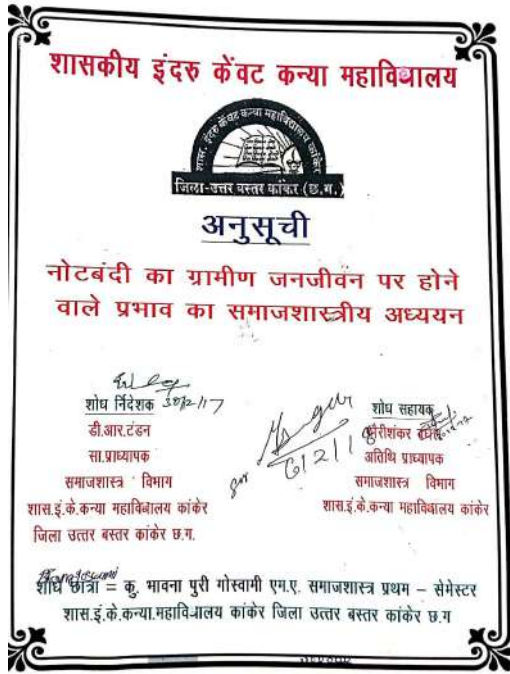 शासकीय इंदरु केंवट कन्या महाविद्यालय
शास. इंदरु केंवट कन्या महाविद्यालय कांकेर
जिला-उत्तर बस्तर कांकेर (छ.ग.)
अनुसूची
नोटबंदी का ग्रामीण जनजीवन पर होने
वाले प्रभाव का समाजशास्त्रीय अध्ययन
शोध निदेशक
डी.आर.टंडन
सा.प्राध्यापक
समाजशास्त्र विभाग
शास.इं.के.कन्या महाविद्यालय कांकेर
जिला उत्तर बस्तर कांकेर छ.ग.
शोध सहायक
अतिथि प्राध्यापक
समाजशास्त्र विभाग
शास.इं.के.कन्या महाविद्यालय कांकेर
शोध छात्रा = कु. भावना पुरी गोस्वामी एम.ए. समाजशास्त्र प्रथम – सेमेस्टर
शास.इं.के.कन्या.महाविद्यालय कांकेर जिला उत्तर बस्तर कांकेर छ.ग